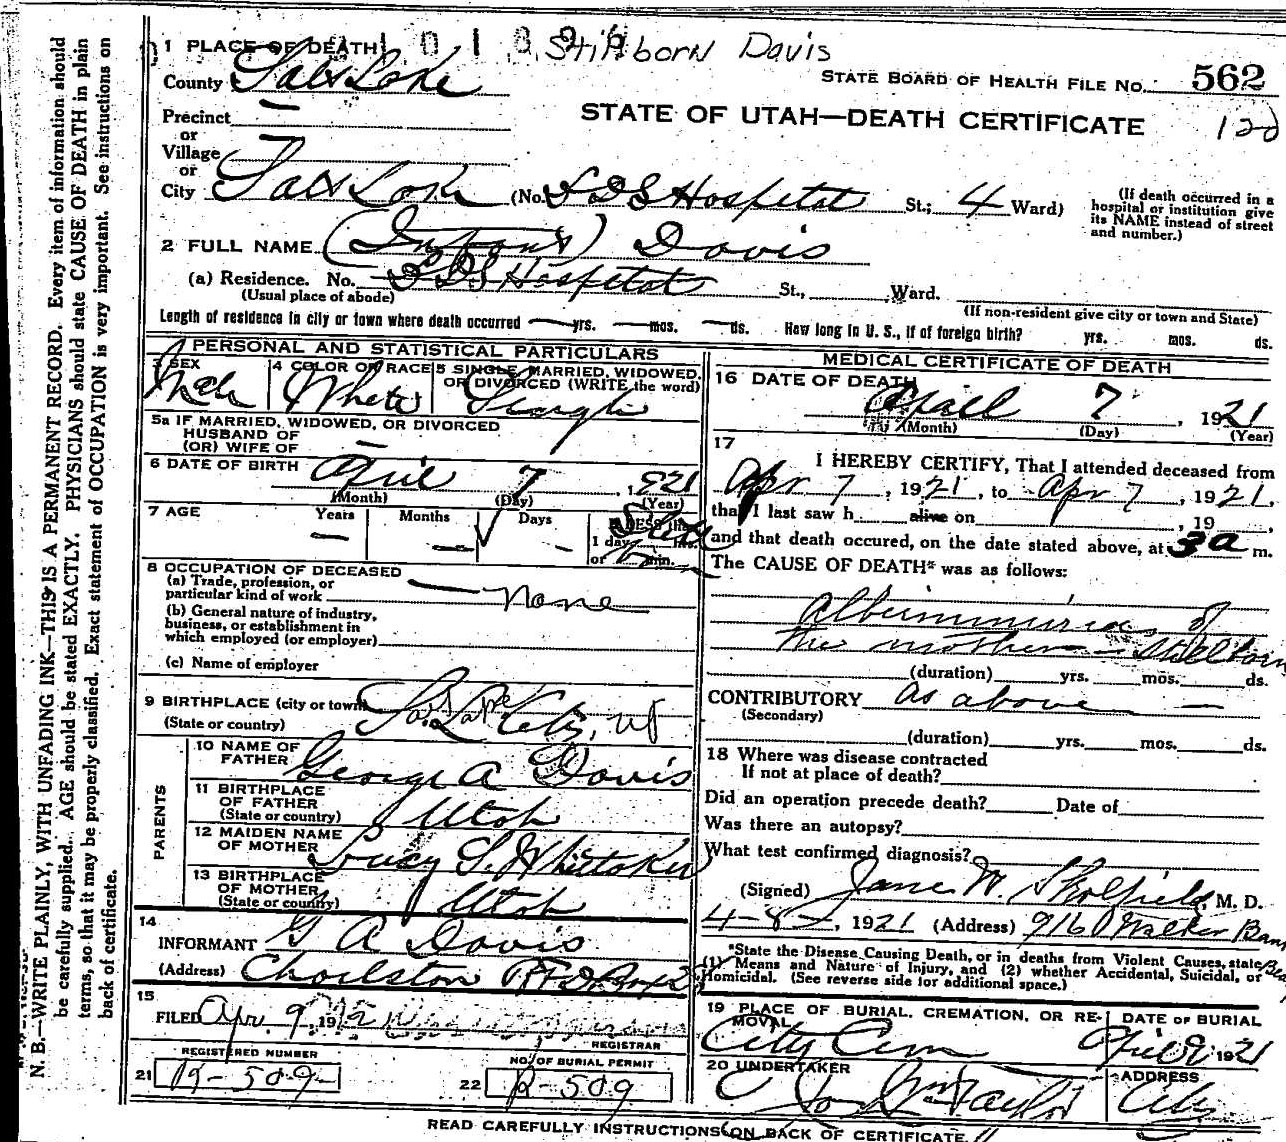 Stillborn Davis
1 PLACE OF DEATH
STATE BOARD OF HEALTH FILE No. 562
County Salt Lake
STATE OF UTAH—DEATH CERTIFICATE
Precinct
or
Village
or
City Salt Lake (No. LDS Hospital St.; 4 Ward)
(If death occurred in a
hospital or institution give
its NAME instead of street
and number.)
2 FULL NAME (Infant) Davis
(a) Residence. No. LDS Hospital St., Ward.
(Usual place of abode)
(If non-resident give city or town and State)
Length of residence in city or town where death occurred yrs. mos. ds. How long in U. S., if of foreign birth? yrs. mos. ds.
PERSONAL AND STATISTICAL PARTICULARS
3 SEX 4 COLOR OR RACE 5 SINGLE, MARRIED, WIDOWED,
OR DIVORCED (WRITE the word)
Male White Single
5a IF MARRIED, WIDOWED, OR DIVORCED
HUSBAND OF
(OR) WIFE OF
6 DATE OF BIRTH April 7, 1921
(Month) (Day) (Year)
7 AGE Years Months Days If LESS than
1 day hrs.
or min.
8 OCCUPATION OF DECEASED
(a) Trade, profession, or
particular kind of work none
(b) General nature of industry,
business, or establishment in
which employed (or employer)
(c) Name of employer
9 BIRTHPLACE (city or town) Salt Lake City, Ut
(State or country)
PARENTS
10 NAME OF
FATHER George A Davis
11 BIRTHPLACE
OF FATHER
(State or country) Utah
12 MAIDEN NAME
OF MOTHER Lucy S. Whittaker
13 BIRTHPLACE
OF MOTHER
(State or country) Utah
14
INFORMANT G A Davis
(Address) Charleston RFD Box 2
15
FILED Apr. 9, 19
REGISTRAR
REGISTERED NUMBER
21 B-509
NO. OF BURIAL PERMIT
22 B-509
MEDICAL CERTIFICATE OF DEATH
16 DATE OF DEATH
April 7, 1921
(Month) (Day) (Year)
17
I HEREBY CERTIFY, That I attended deceased from
Apr 7, 1921, to Apr 7, 1921.
that I last saw h alive on , 19 ,
and that death occured, on the date stated above, at 3 a m.
The CAUSE OF DEATH* was as follows:
Albuminuria of
the mother - Stillborn
(duration) yrs. mos. ds.
CONTRIBUTORY as above
(Secondary)
(duration) yrs. mos. ds.
18 Where was disease contracted
If not at place of death?
Did an operation precede death? Date of
Was there an autopsy?
What test confirmed diagnosis?
(Signed) Jane W. Skolfield, M. D.
4-8-, 1921 (Address) 916 Walker Bank
*State the Disease Causing Death, or in deaths from Violent Causes, state
(1) Means and Nature of Injury, and (2) whether Accidental, Suicidal, or
Homicidal. (See reverse side for additional space.)
19 PLACE OF BURIAL, CREMATION, OR RE-
MOVAL
City Cem
DATE OF BURIAL
April 9 1921
20 UNDERTAKER
Taylor
ADDRESS
City
READ CAREFULLY INSTRUCTIONS ON BACK OF CERTIFICATE.
N. B.—WRITE PLAINLY, WITH UNFADING INK—THIS IS A PERMANENT RECORD. Every item of information should
be carefully supplied. AGE should be stated EXACTLY. PHYSICIANS should state CAUSE OF DEATH in plain
terms, so that it may be properly classified. Exact statement of OCCUPATION is very important. See instructions on
back of certificate.